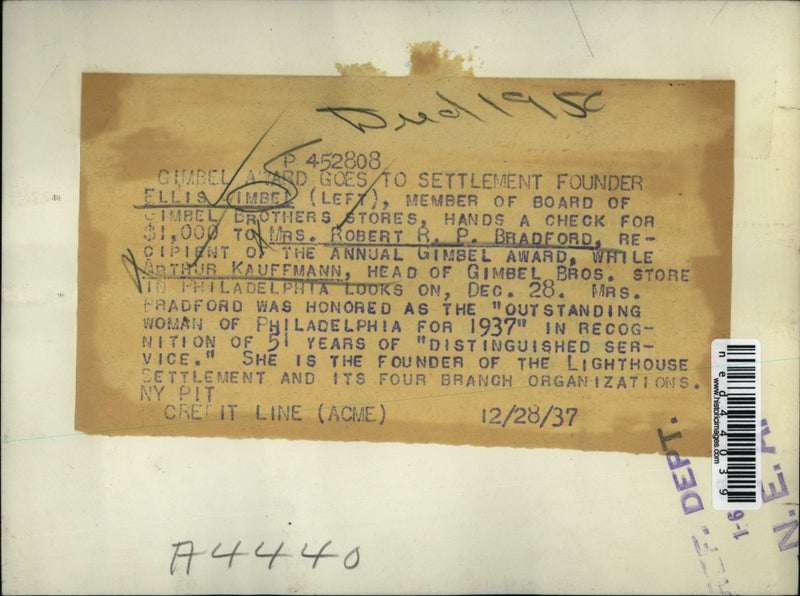 Died 1950
P 452808
GIMBEL AWARD GOES TO SETTLEMENT FOUNDER
ELLIS GIMBEL (LEFT), MEMBER OF BOARD OF
GIMBEL BROTHERS STORES, HANDS A CHECK FOR
$1,000 TO MRS. ROBERT R. P. BRADFORD, RE-
CIPIENT OF THE ANNUAL GIMBEL AWARD, WHILE
ARTHUR KAUFFMANN, HEAD OF GIMBEL BROS. STORE
IN PHILADELPHIA LOOKS ON, DEC. 28. MRS.
BRADFORD WAS HONORED AS THE "OUTSTANDING
WOMAN OF PHILADELPHIA FOR 1937" IN RECOG-
NITION OF 51 YEARS OF "DISTINGUISHED SER-
VICE." SHE IS THE FOUNDER OF THE LIGHTHOUSE
SETTLEMENT AND ITS FOUR BRANCH ORGANIZATIONS.
NY PIT
CREDIT LINE (ACME) 12/28/37
ned44039
www.historicimages.com
DEPT.
1-6
N. E. A.
A4440